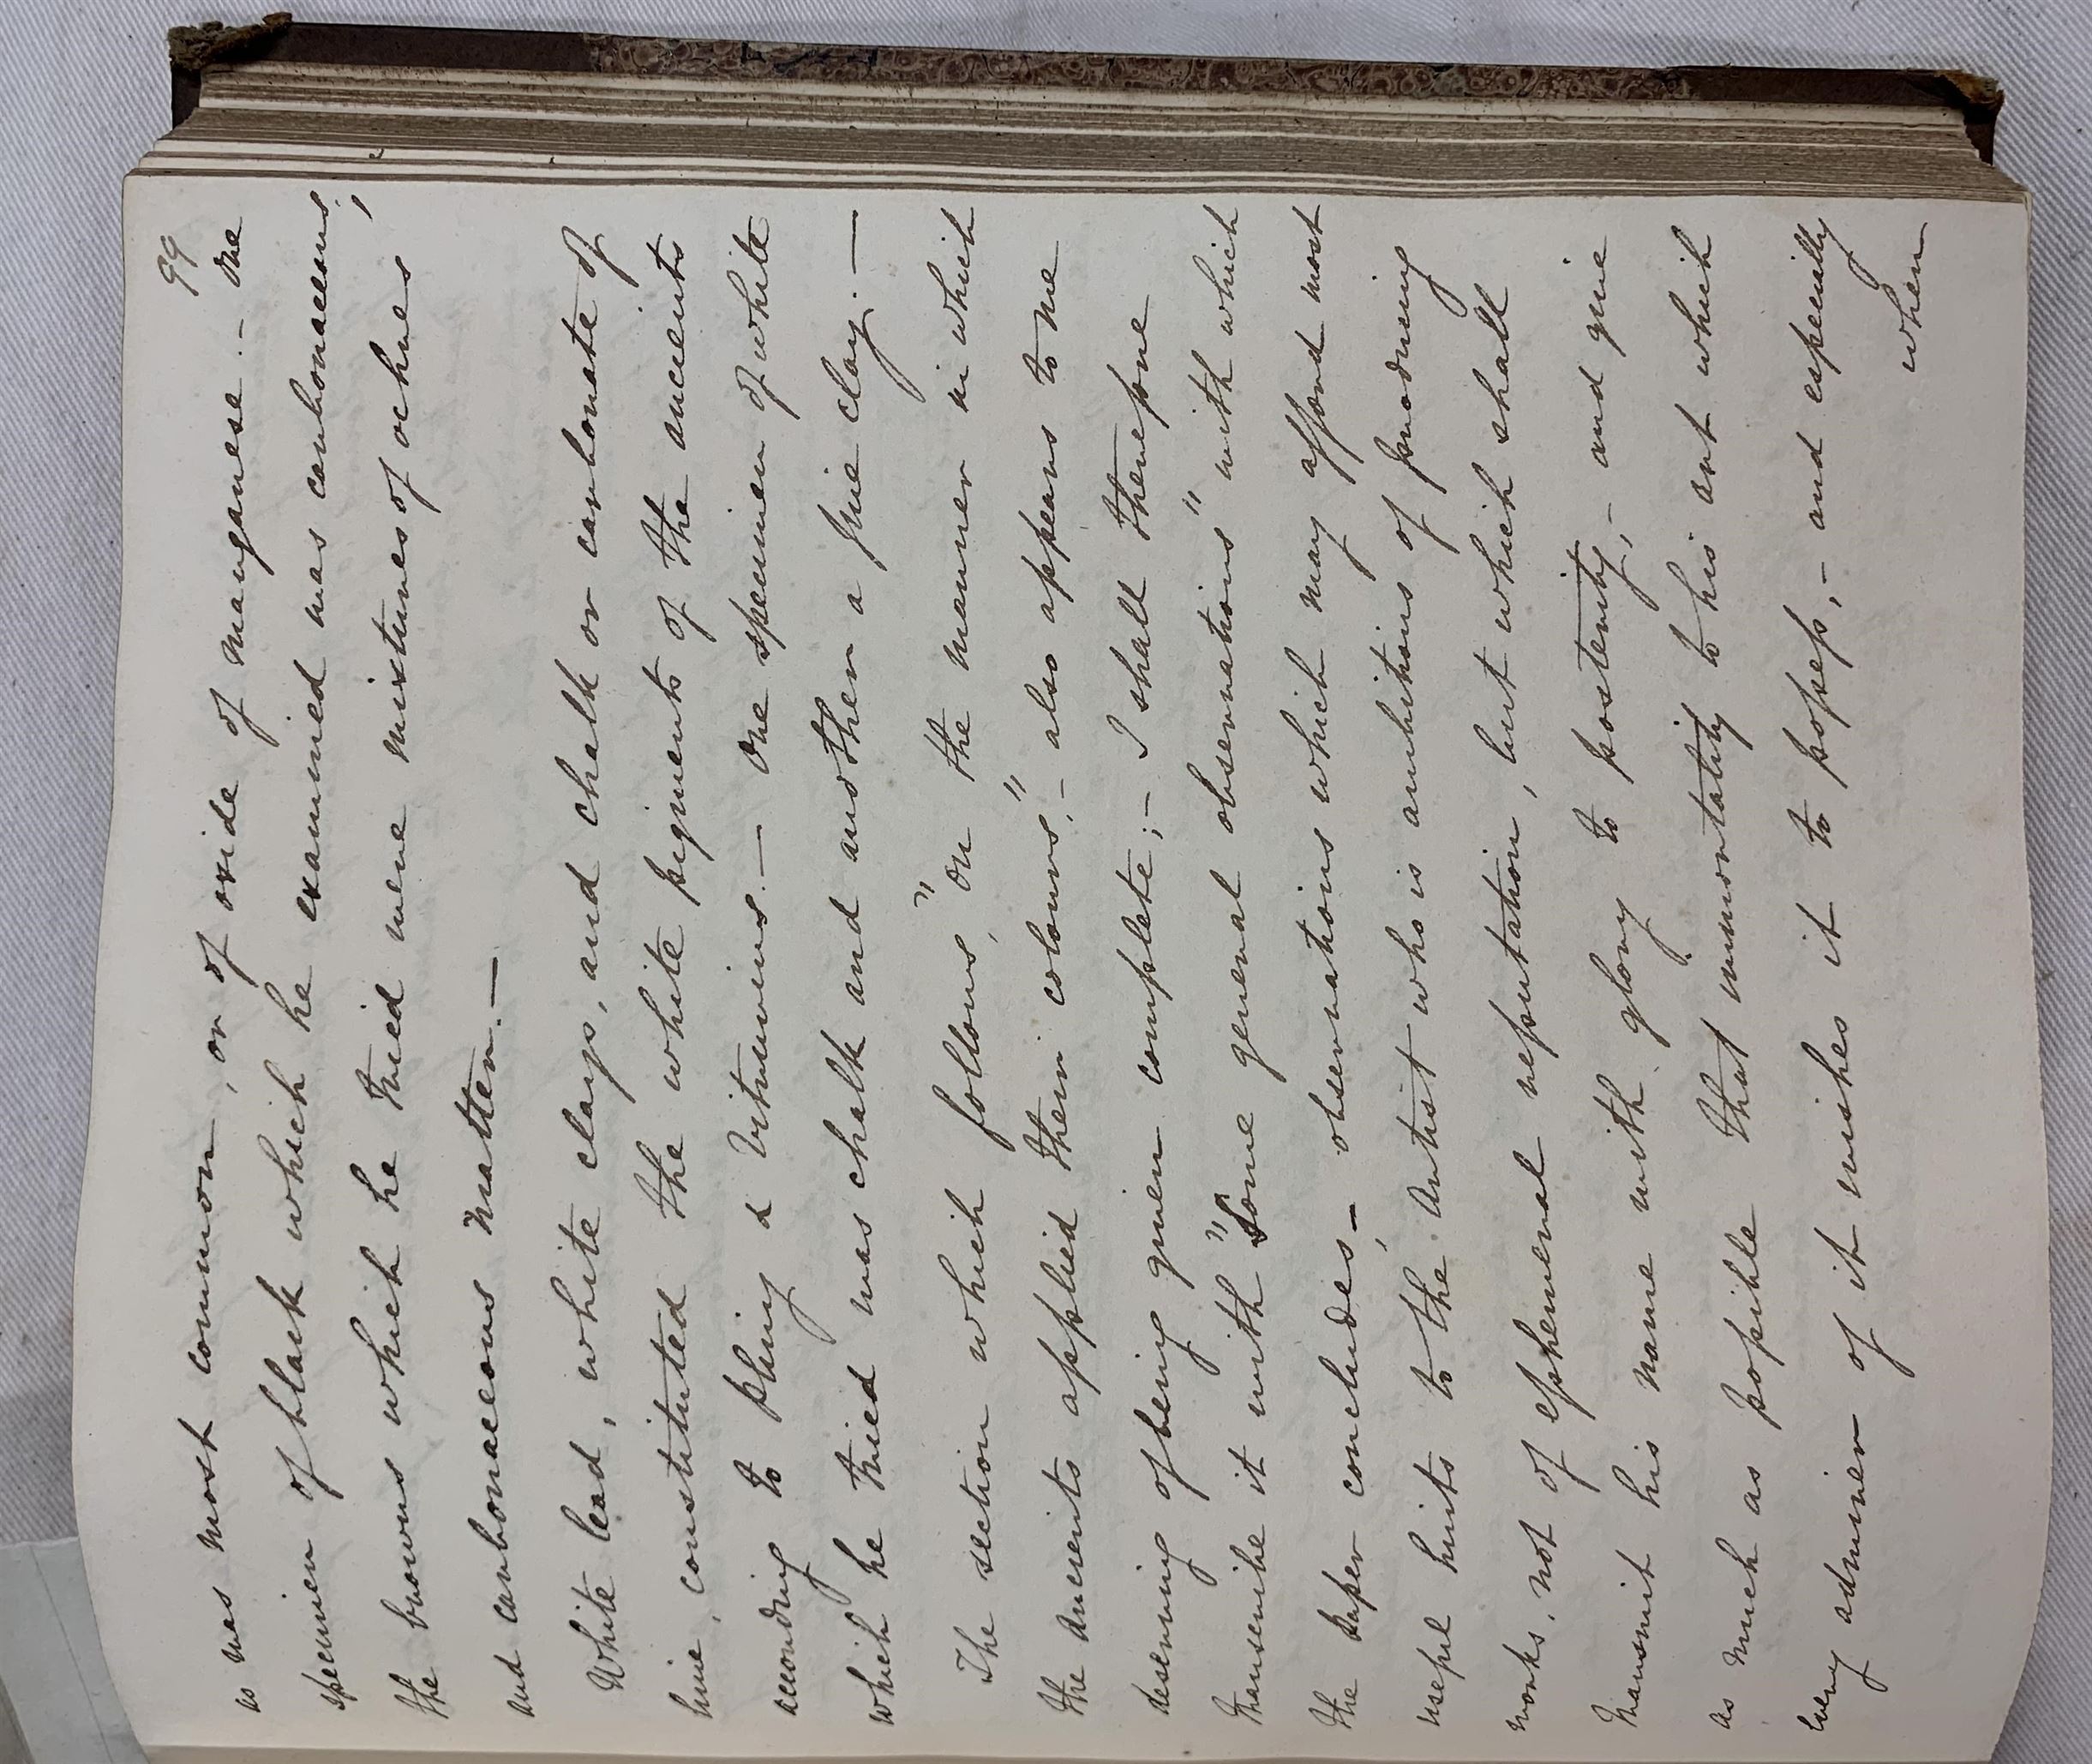 99
as was most common, or of oxide of manganese. — One
specimen of black which he examined was carbonaceous;
the browns which he tried were mixtures of ochres
and carbonaceous matter. —
White lead, white clays, and chalk or carbonate of
lime, constituted the white pigments of the ancients
according to pliny & Vitruvius. — One specimen of white
which he tried was chalk and another a fine clay. —
The section which follows, "on the manner in which
the ancients applied their colours," — also appears to me
deserving of being given complete; — I shall therefore
transcribe it with "Some general observations" with which
the paper concludes, — observations which may afford most
useful hints to the Artist who is ambitious of producing
works, not of ephemeral reputation, but which shall
transmit his name with glory to posterity, — and give
as much as possible that immortality to his art which
every admirer of it wishes it to possess, — and especially
when